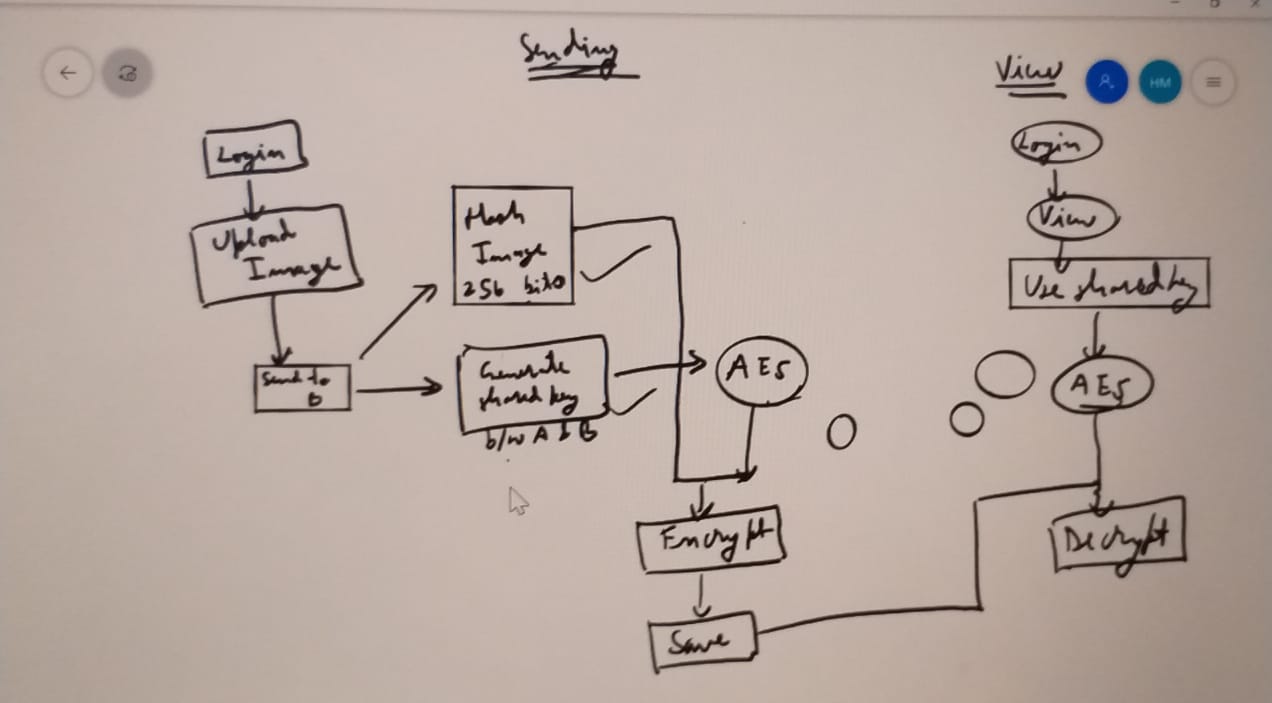 Sending
View
HM
Login
Upload
Image
Send to
B
Hash
Image
256 bits
Generate
shared key
b/w A & B
AES
Encrypt
Save
Login
View
Use shared key
AES
Decrypt